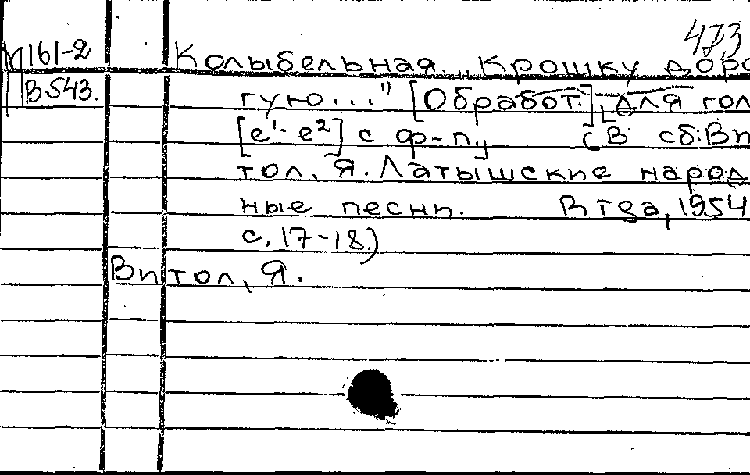 473
161-2 Колыбельная. „Крошку доро
В543. гую..." [Обработ.] для гол
[e¹-e²] с ф-п„ (В сб: Ви
тол, Я. Латышские народ
ные песни. Рига, 1954
с. 17-18)
Витол, Я.